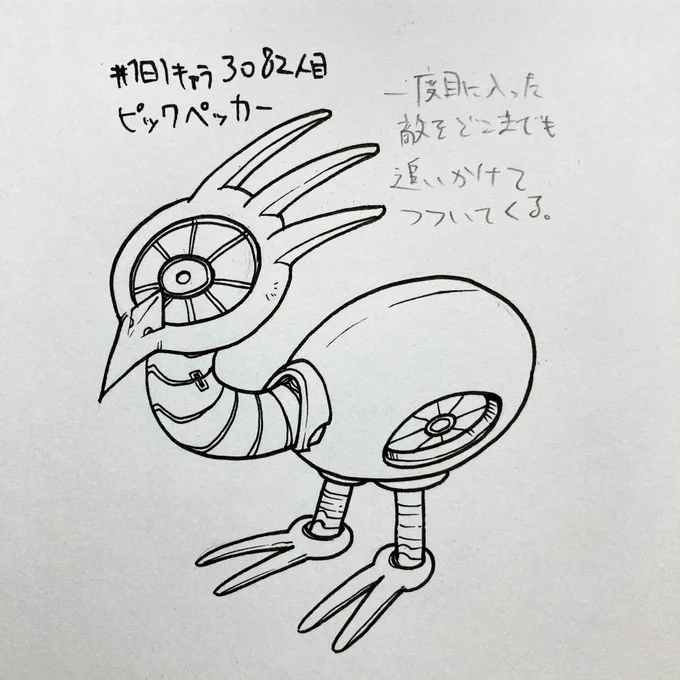 #1日1キャラ3082人目
ピックペッカー
一度目に入った
敵をどこまでも
追いかけて
つついてくる。